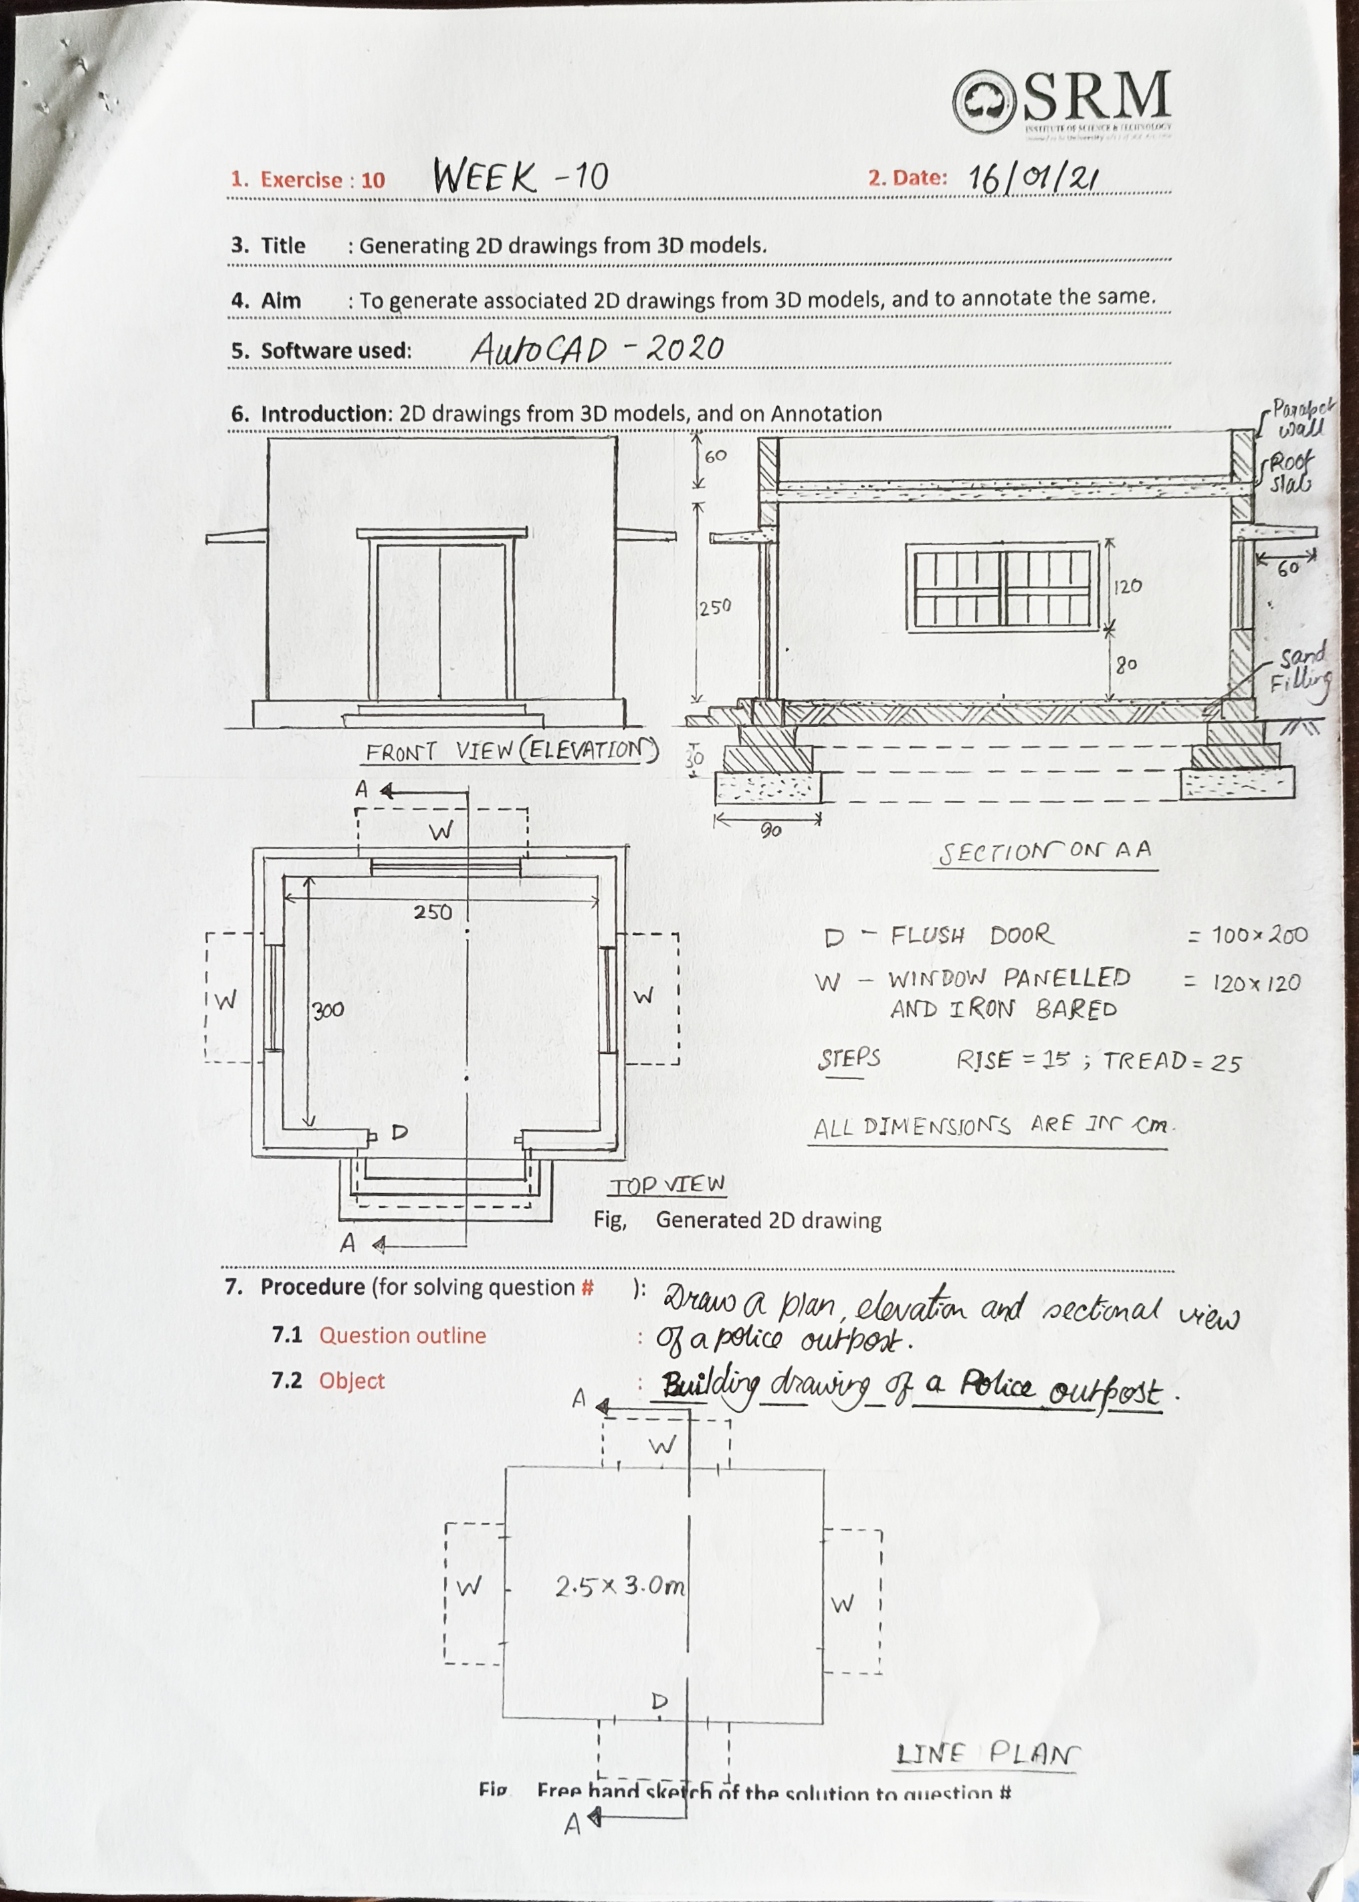 SRM
INSTITUTE OF SCIENCE & TECHNOLOGY
1. Exercise : 10 WEEK - 10 2. Date: 16/01/21
3. Title : Generating 2D drawings from 3D models.
4. Aim : To generate associated 2D drawings from 3D models, and to annotate the same.
5. Software used: AutoCAD - 2020
6. Introduction: 2D drawings from 3D models, and on Annotation
Parapet
wall
60
Roof
slab
60
250
120
80
Sand
Filling
FRONT VIEW (ELEVATION)
30
90
SECTION ON AA
A
W
250
W
300
W
D
A
TOP VIEW
D - FLUSH DOOR = 100 x 200
W - WINDOW PANELLED = 120 x 120
AND IRON BARED
STEPS RISE = 15 ; TREAD = 25
ALL DIMENSIONS ARE IN cm.
Fig, Generated 2D drawing
7. Procedure (for solving question # ): Draw a plan, elevation and sectional view
7.1 Question outline : of a police outpost.
7.2 Object : Building drawing of a Police outpost.
A
W
W
2.5 x 3.0m
W
D
LINE PLAN
Fig Free hand sketch of the solution to question #
A